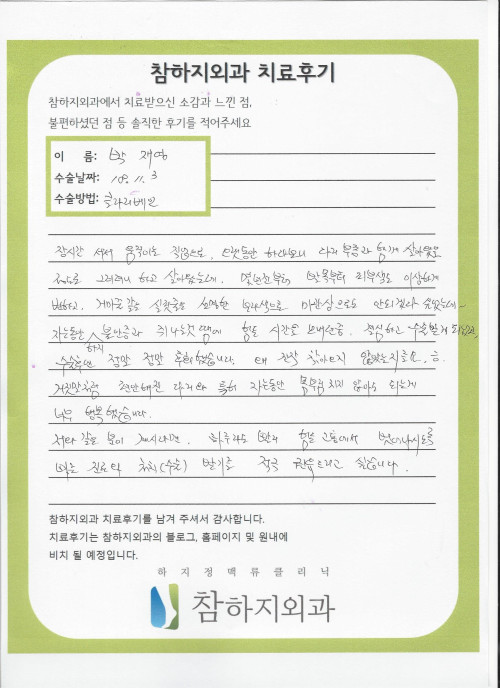 참하지외과 치료후기
참하지외과에서 치료받으신 소감과 느낀 점,
불편하셨던 점 등 솔직한 후기를 적어주세요
이 름: 박 재영
수술날짜: 18. 11. 3
수술방법: 클라리베인
장시간 서서 움직이는 직업으로, 오랫동안 하다보니 다리 부종과 힘들게 살아왔던
그러려니 하고 살아왔는데. 몇년전부터 발목부터 피부색도 이상하게
변하고, 거머리 같은 실핏줄도 보라색으로 미관상으로도 안되겠다 싶었는데~
자는동안 불안증과 쥐나는것 땜에 힘든 시간을 보내던중. 결심하고 수술받게 되었고,
하지
수술후엔 정말 정말 후회했습니다. 왜 진작 찾아오지 않았는지를요. 음.
거짓말처럼 편안해진 다리와 특히 자는동안 몸부림 치지 않아도 되는게
너무 행복했습니다.
저와 같은 분이 계시다면. 하루라도 빨리 힘든 고통에서 벗어나시도록
빠른 진료와 처치(수술) 받기를 적극 권유드리고 싶습니다.
참하지외과 치료후기를 남겨 주셔서 감사합니다.
치료후기는 참하지외과의 블로그, 홈페이지 및 원내에
비치 될 예정입니다.
하지정맥류클리닉
참하지외과